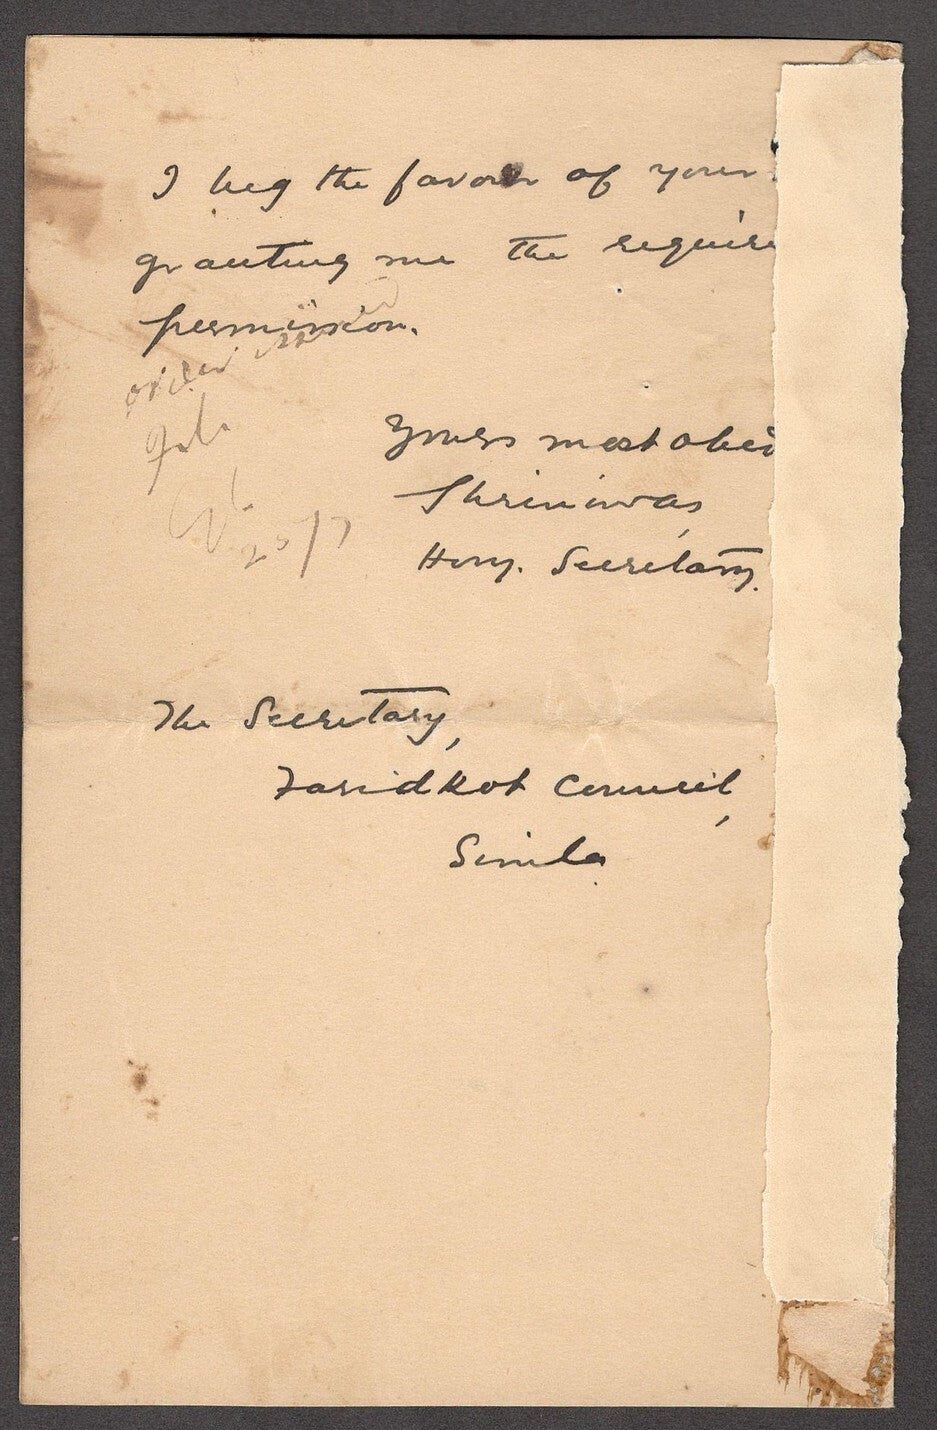 I beg the favour of your
granting me the require
permission.
order issued
File
25/7
Yours most obed
Shriniwas
Hony. Secretary.
The Secretary,
Faridkot Council,
Simla.